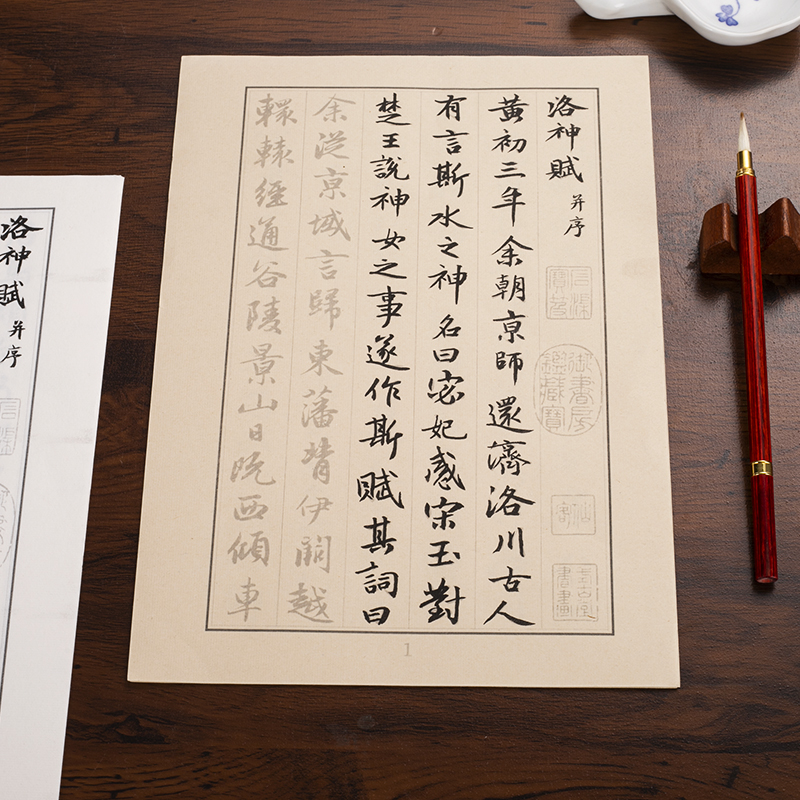 洛神賦 并序
黄初三年余朝京師還濟洛川古人
有言斯水之神名曰宓妃感宋玉對
楚王說神女之事遂作斯賦其詞曰
余從京域言歸東藩背伊闕越
轘轅經通谷陵景山日既西傾車
石渠寶笈
御書房鑑藏寶
式古堂書畫
1
洛神賦 并序